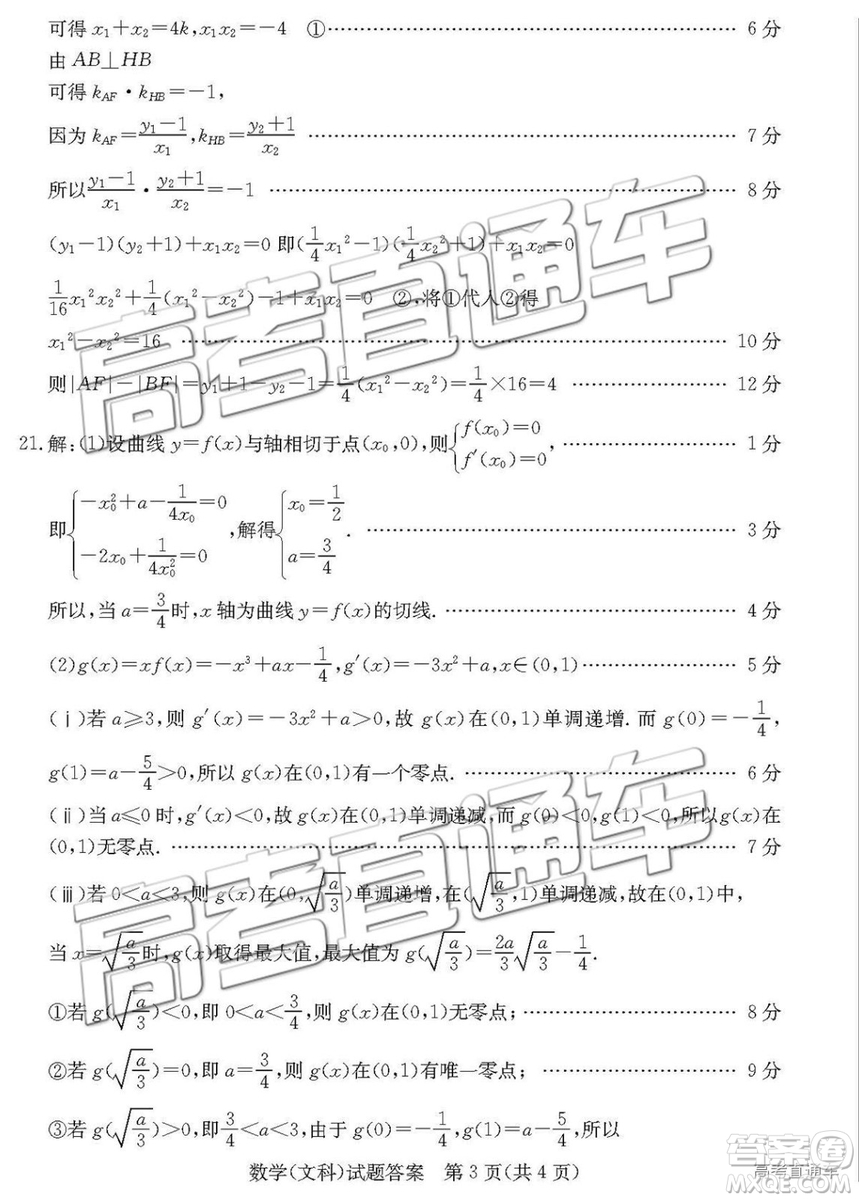 可得 x₁+x₂=4k,x₁x₂=-4 ①…………………………………………… 6 分
由 AB⊥HB
可得 k_AF·k_HB=-1,
因为 k_AF=(y₁-1)/x₁,k_HB=(y₂+1)/x₂ …………………………………………… 7 分
所以 (y₁-1)/x₁·(y₂+1)/x₂=-1 …………………………………………… 8 分
(y₁-1)(y₂+1)+x₁x₂=0 即(1/4 x₁²-1)(1/4 x₂²+1)+x₁x₂=0
1/16 x₁²x₂²+1/4(x₁²-x₂²)-1+x₁x₂=0 ②,将①代人②得
x₁²-x₂²=16 …………………………………………… 10 分
则|AF|-|BF|=y₁+1-y₂-1=1/4(x₁²-x₂²)=1/4×16=4 ……………… 12 分
21.解:(1)设曲线 y=f(x)与轴相切于点(x₀,0),则{f(x₀)=0 f′(x₀)=0, ……………… 1 分
即{-x₀²+a-1/(4x₀)=0 -2x₀+1/(4x₀²)=0,解得{x₀=1/2 a=3/4. …………………………… 3 分
所以,当 a=3/4时,x 轴为曲线 y=f(x)的切线. …………………………… 4 分
(2)g(x)=xf(x)=-x³+ax-1/4,g′(x)=-3x²+a,x∈(0,1)……………… 5 分
(ⅰ)若 a≥3,则 g′(x)=-3x²+a>0,故 g(x)在(0,1)单调递增. 而 g(0)=-1/4,
g(1)=a-5/4>0,所以 g(x)在(0,1)有一个零点. …………………………… 6 分
(ⅱ)当a≤0 时,g′(x)<0,故 g(x)在(0,1)单调递减,而 g(0)<0,g(1)<0,所以g(x)在
(0,1)无零点. …………………………………………… 7 分
(ⅲ)若 0<a<3,则 g(x)在(0,√(a/3))单调递增,在(√(a/3),1)单调递减,故在(0,1)中,
当 x=√(a/3)时,g(x)取得最大值,最大值为 g(√(a/3))=2a/3 √(a/3)-1/4.
①若 g(√(a/3))<0,即 0<a<3/4,则 g(x)在(0,1)无零点;…………………… 8 分
②若 g(√(a/3))=0,即 a=3/4,则 g(x)在(0,1)有唯一零点; …………………… 9 分
③若 g(√(a/3))>0,即3/4<a<3,由于 g(0)=-1/4,g(1)=a-5/4,所以
数学(文科)试题答案 第 3 页(共 4 页)
高考直通车
高考直通车
答案圈
高考直通车
MXQE.COM